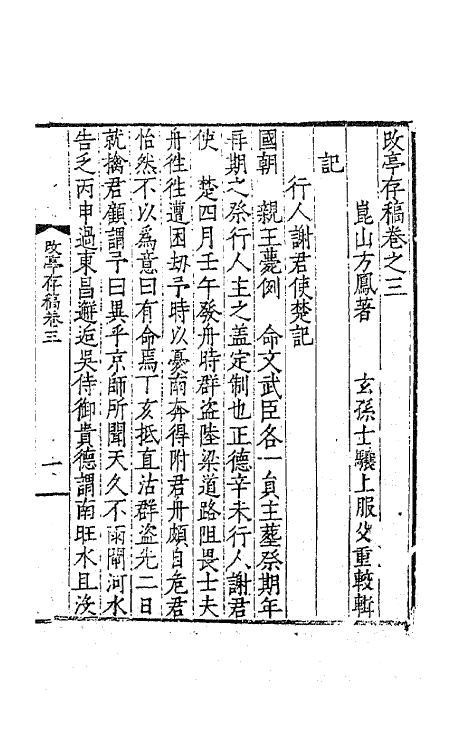 改亭存稿卷之三
崑山方鳳著　玄孫士驤上服父重較輯
記
行人謝君使楚記
國朝　親王薨例　命文武臣各一員主塟祭期年
再期之祭行人主之盖定制也正德辛未行人謝君
使　楚四月壬午發舟時群盜陸梁道路阻畏士夫
舟徃徃遭困刧予時以憂南奔得附君舟頗自危君
怡然不以爲意曰有命焉丁亥抵直沽群盜先二日
就擒君顧謂予曰異乎京師所聞天久不雨閘河水
告乏丙申過東昌邂逅吳侍御貴德謂南旺水且涸
改亭存稿卷三
一